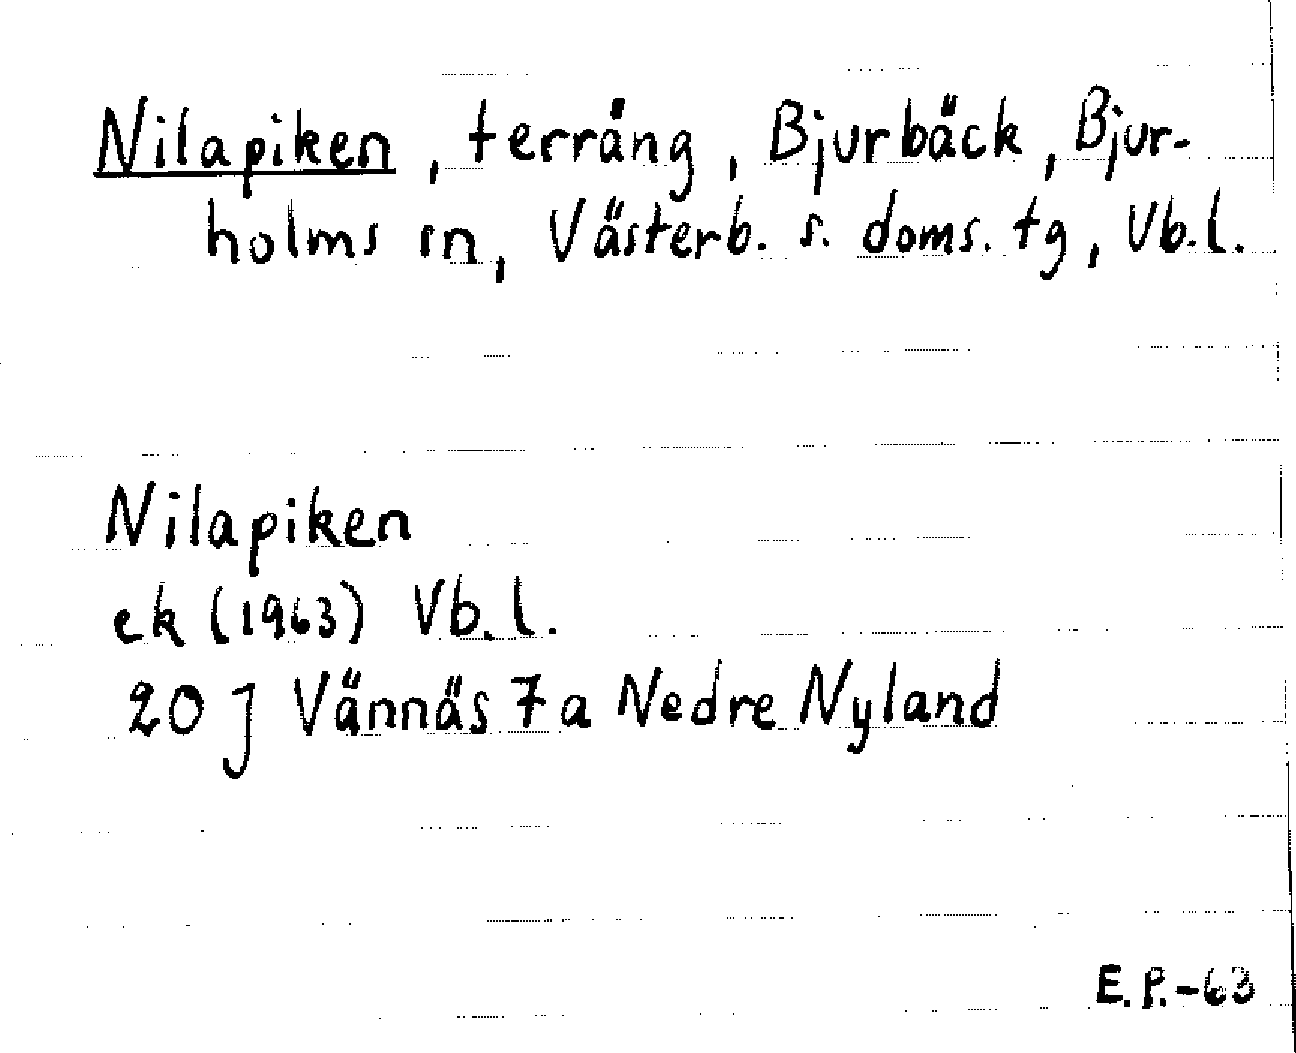 Nilapiken, terräng, Bjurbäck, Bjur-
holms sn, Västerb. s. doms. tg, Vb.l.
Nilapiken
ek (1963) Vb.l.
20 J Vännäs 7a Nedre Nyland
E.P.-63